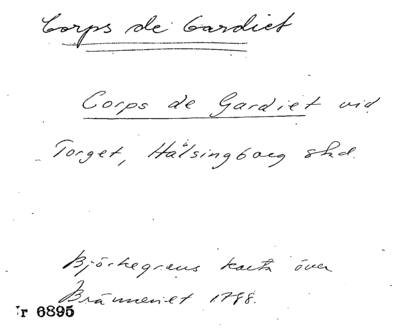 Corps de Gardiet
Corps de Gardiet vid
Torget, Hälsingborg shd.
Björkegrens karta över
Brännvinet 1798.
r 6895